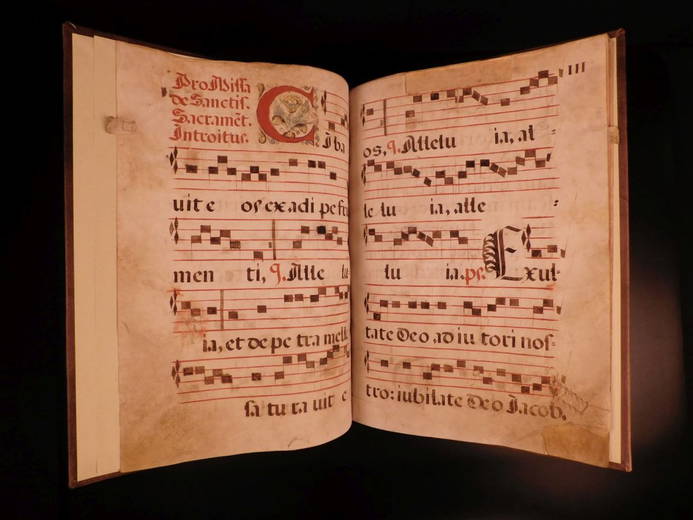 Pro Missa
de Sanctis.
Sacramēt.
Introitus.
Ciba
uit e os ex adi pe fru
men ti, ℣. Alle lu
ia, et de pe tra melle
sa tu ra uit e
III
os, ℣. Allelu ia, al-
le lu ia, alle-
lu ia. ps. Exul-
tate Deo ad iu tori nos-
tro: iubilate Deo Jacob.